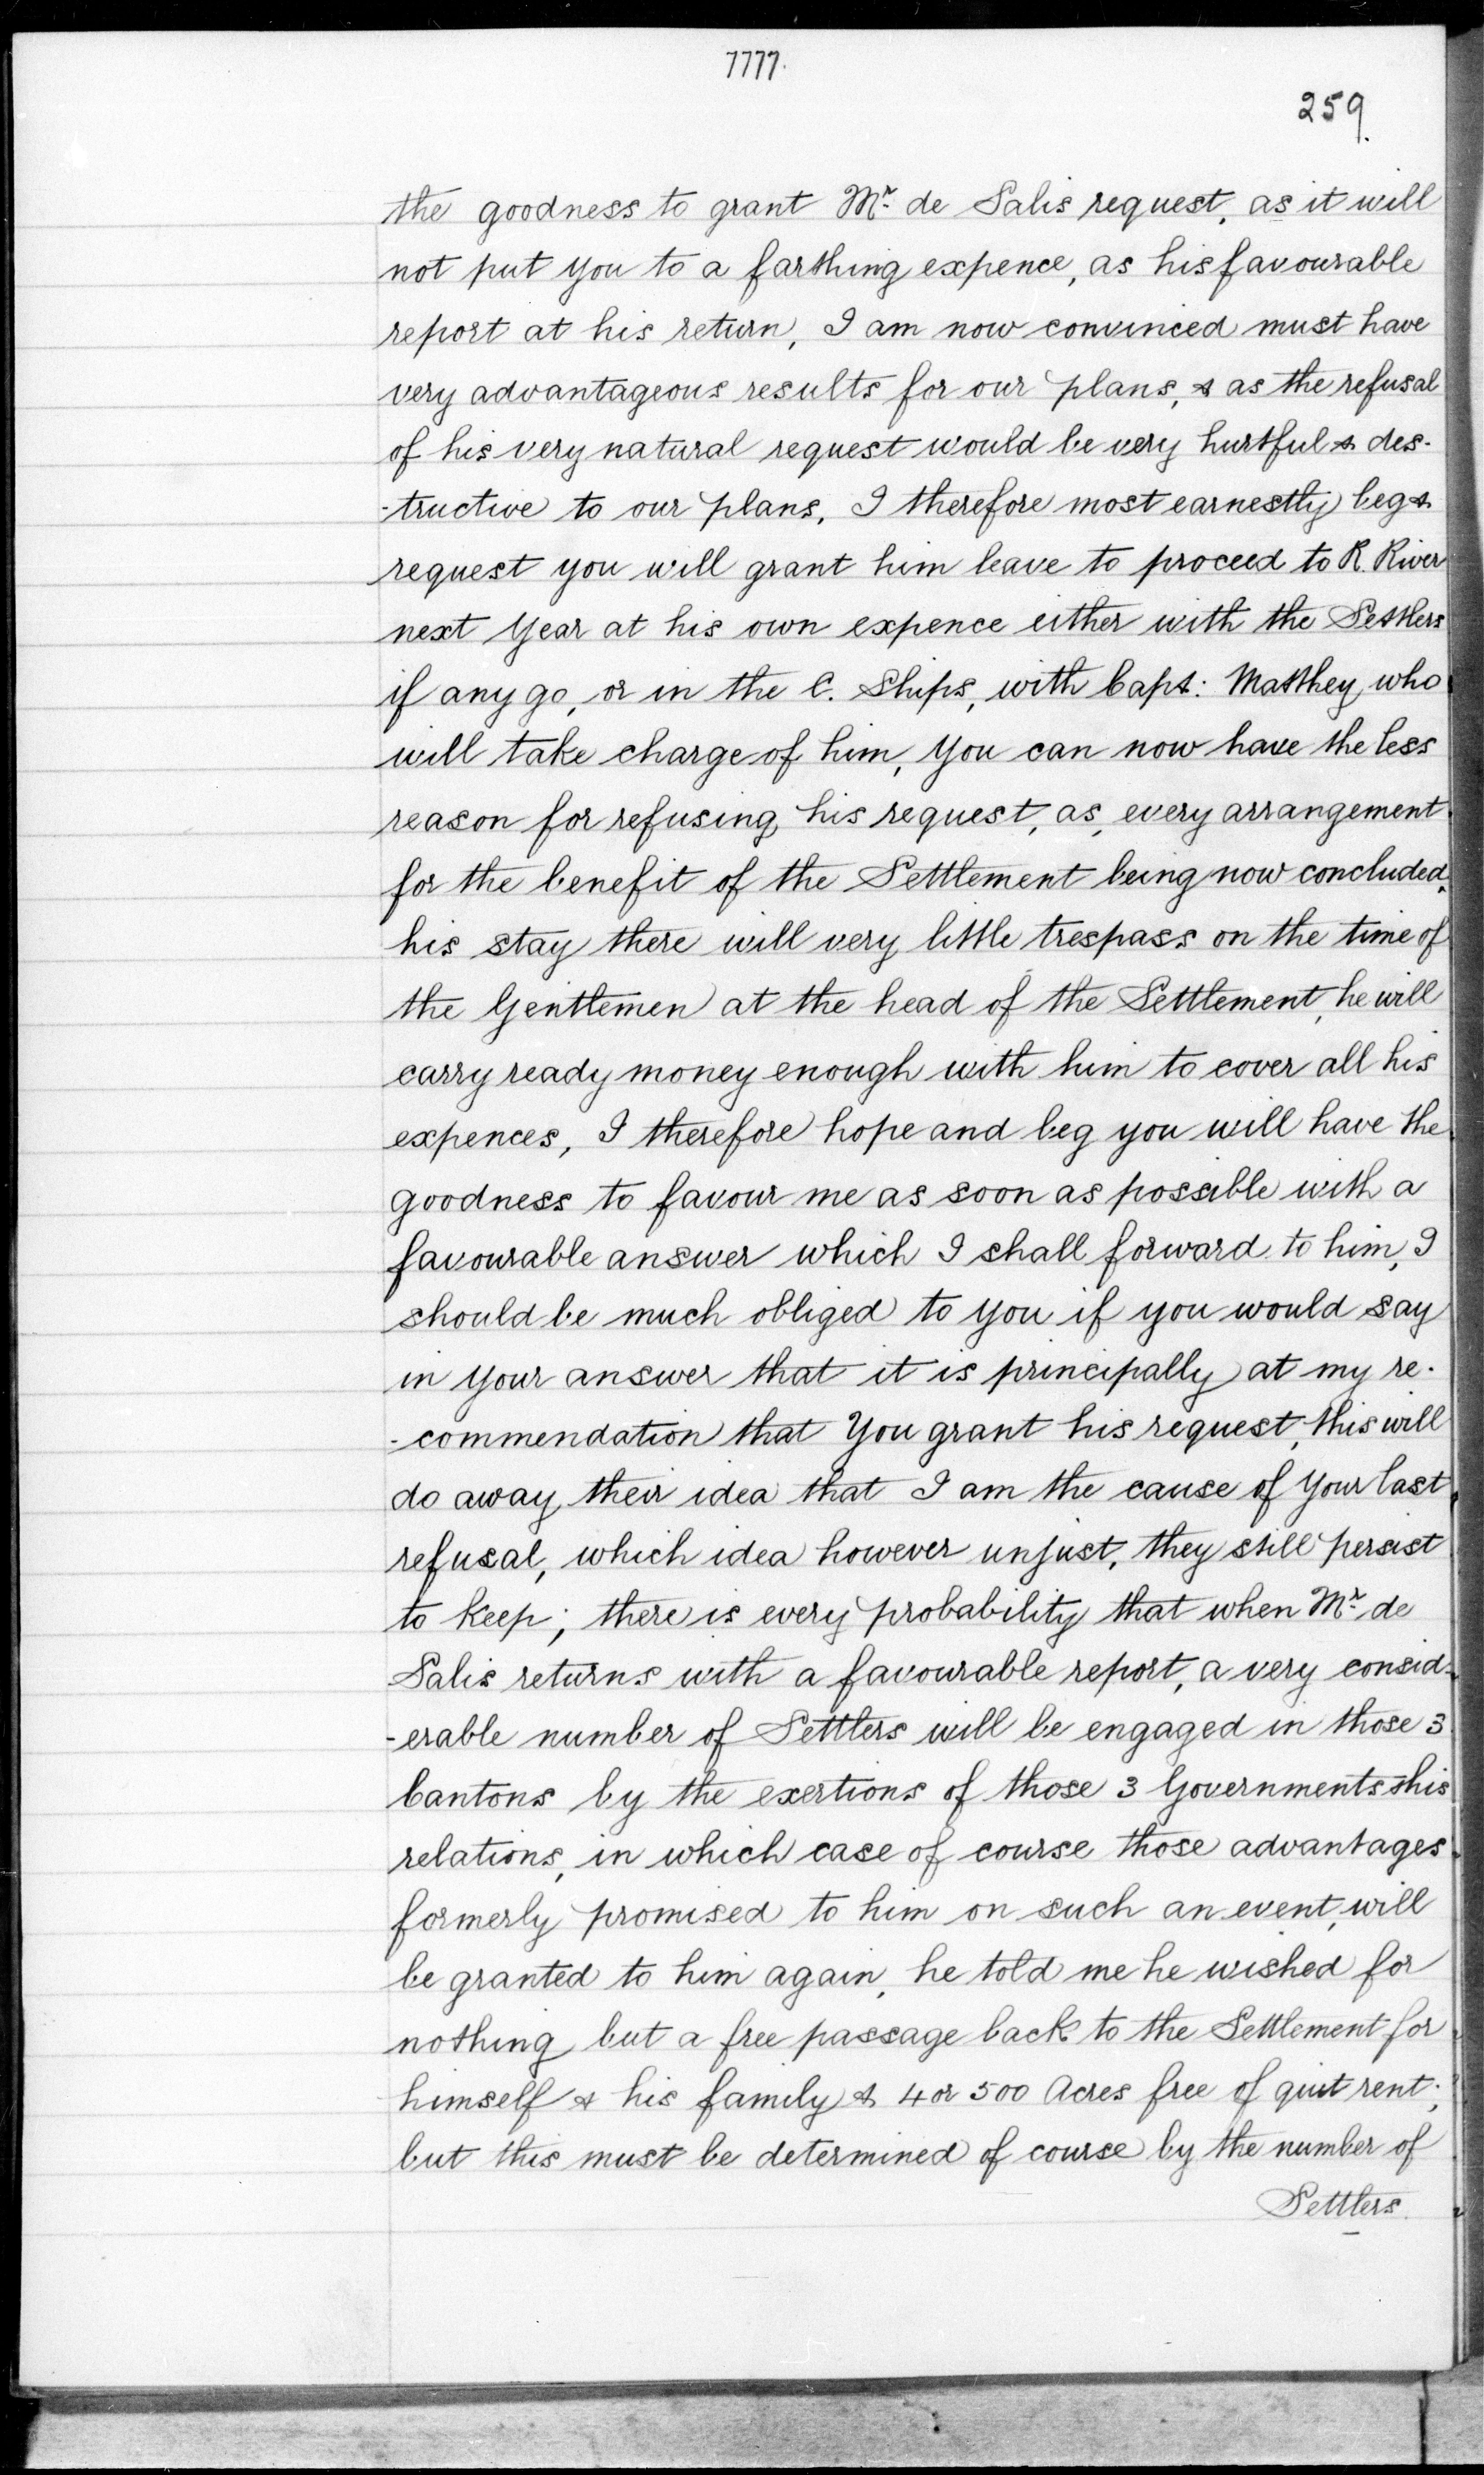 7777.
259.
the goodness to grant Mr. de Salis request, as it will
not put you to a farthing expence, as his favourable
report at his return, I am now convinced must have
very advantageous results for our plans, & as the refusal
of his very natural request would be very hurtful & des-
-tructive to our plans, I therefore most earnestly beg &
request you will grant him leave to proceed to R. River
next Year at his own expence either with the Settlers
if any go, or in the C. Ships, with Capt: Matthey, who
will take charge of him, You can now have the less
reason for refusing his request, as, every arrangement
for the benefit of the Settlement being now concluded,
his stay there will very little trespass on the time of
the Gentlemen at the head of the Settlement, he will
carry ready money enough with him to cover all his
expences, I therefore hope and beg you will have the
goodness to favour me as soon as possible with a
favourable answer which I shall forward to him, I
should be much obliged to You if you would say
in Your answer that it is principally at my re-
-commendation that You grant his request, this will
do away their idea that I am the cause of Your last
refusal, which idea however unjust, they still persist
to keep; there is every probability that when Mr. de
Salis returns with a favourable report, a very consid-
-erable number of Settlers will be engaged in those 3
Cantons by the exertions of those 3 Governments & his
relations, in which case of course those advantages
formerly promised to him on such an event, will
be granted to him again, he told me he wished for
nothing but a free passage back to the Settlement for
himself & his family & 4 or 500 Acres free of quit rent;
but this must be determined of course by the number of
Settlers.